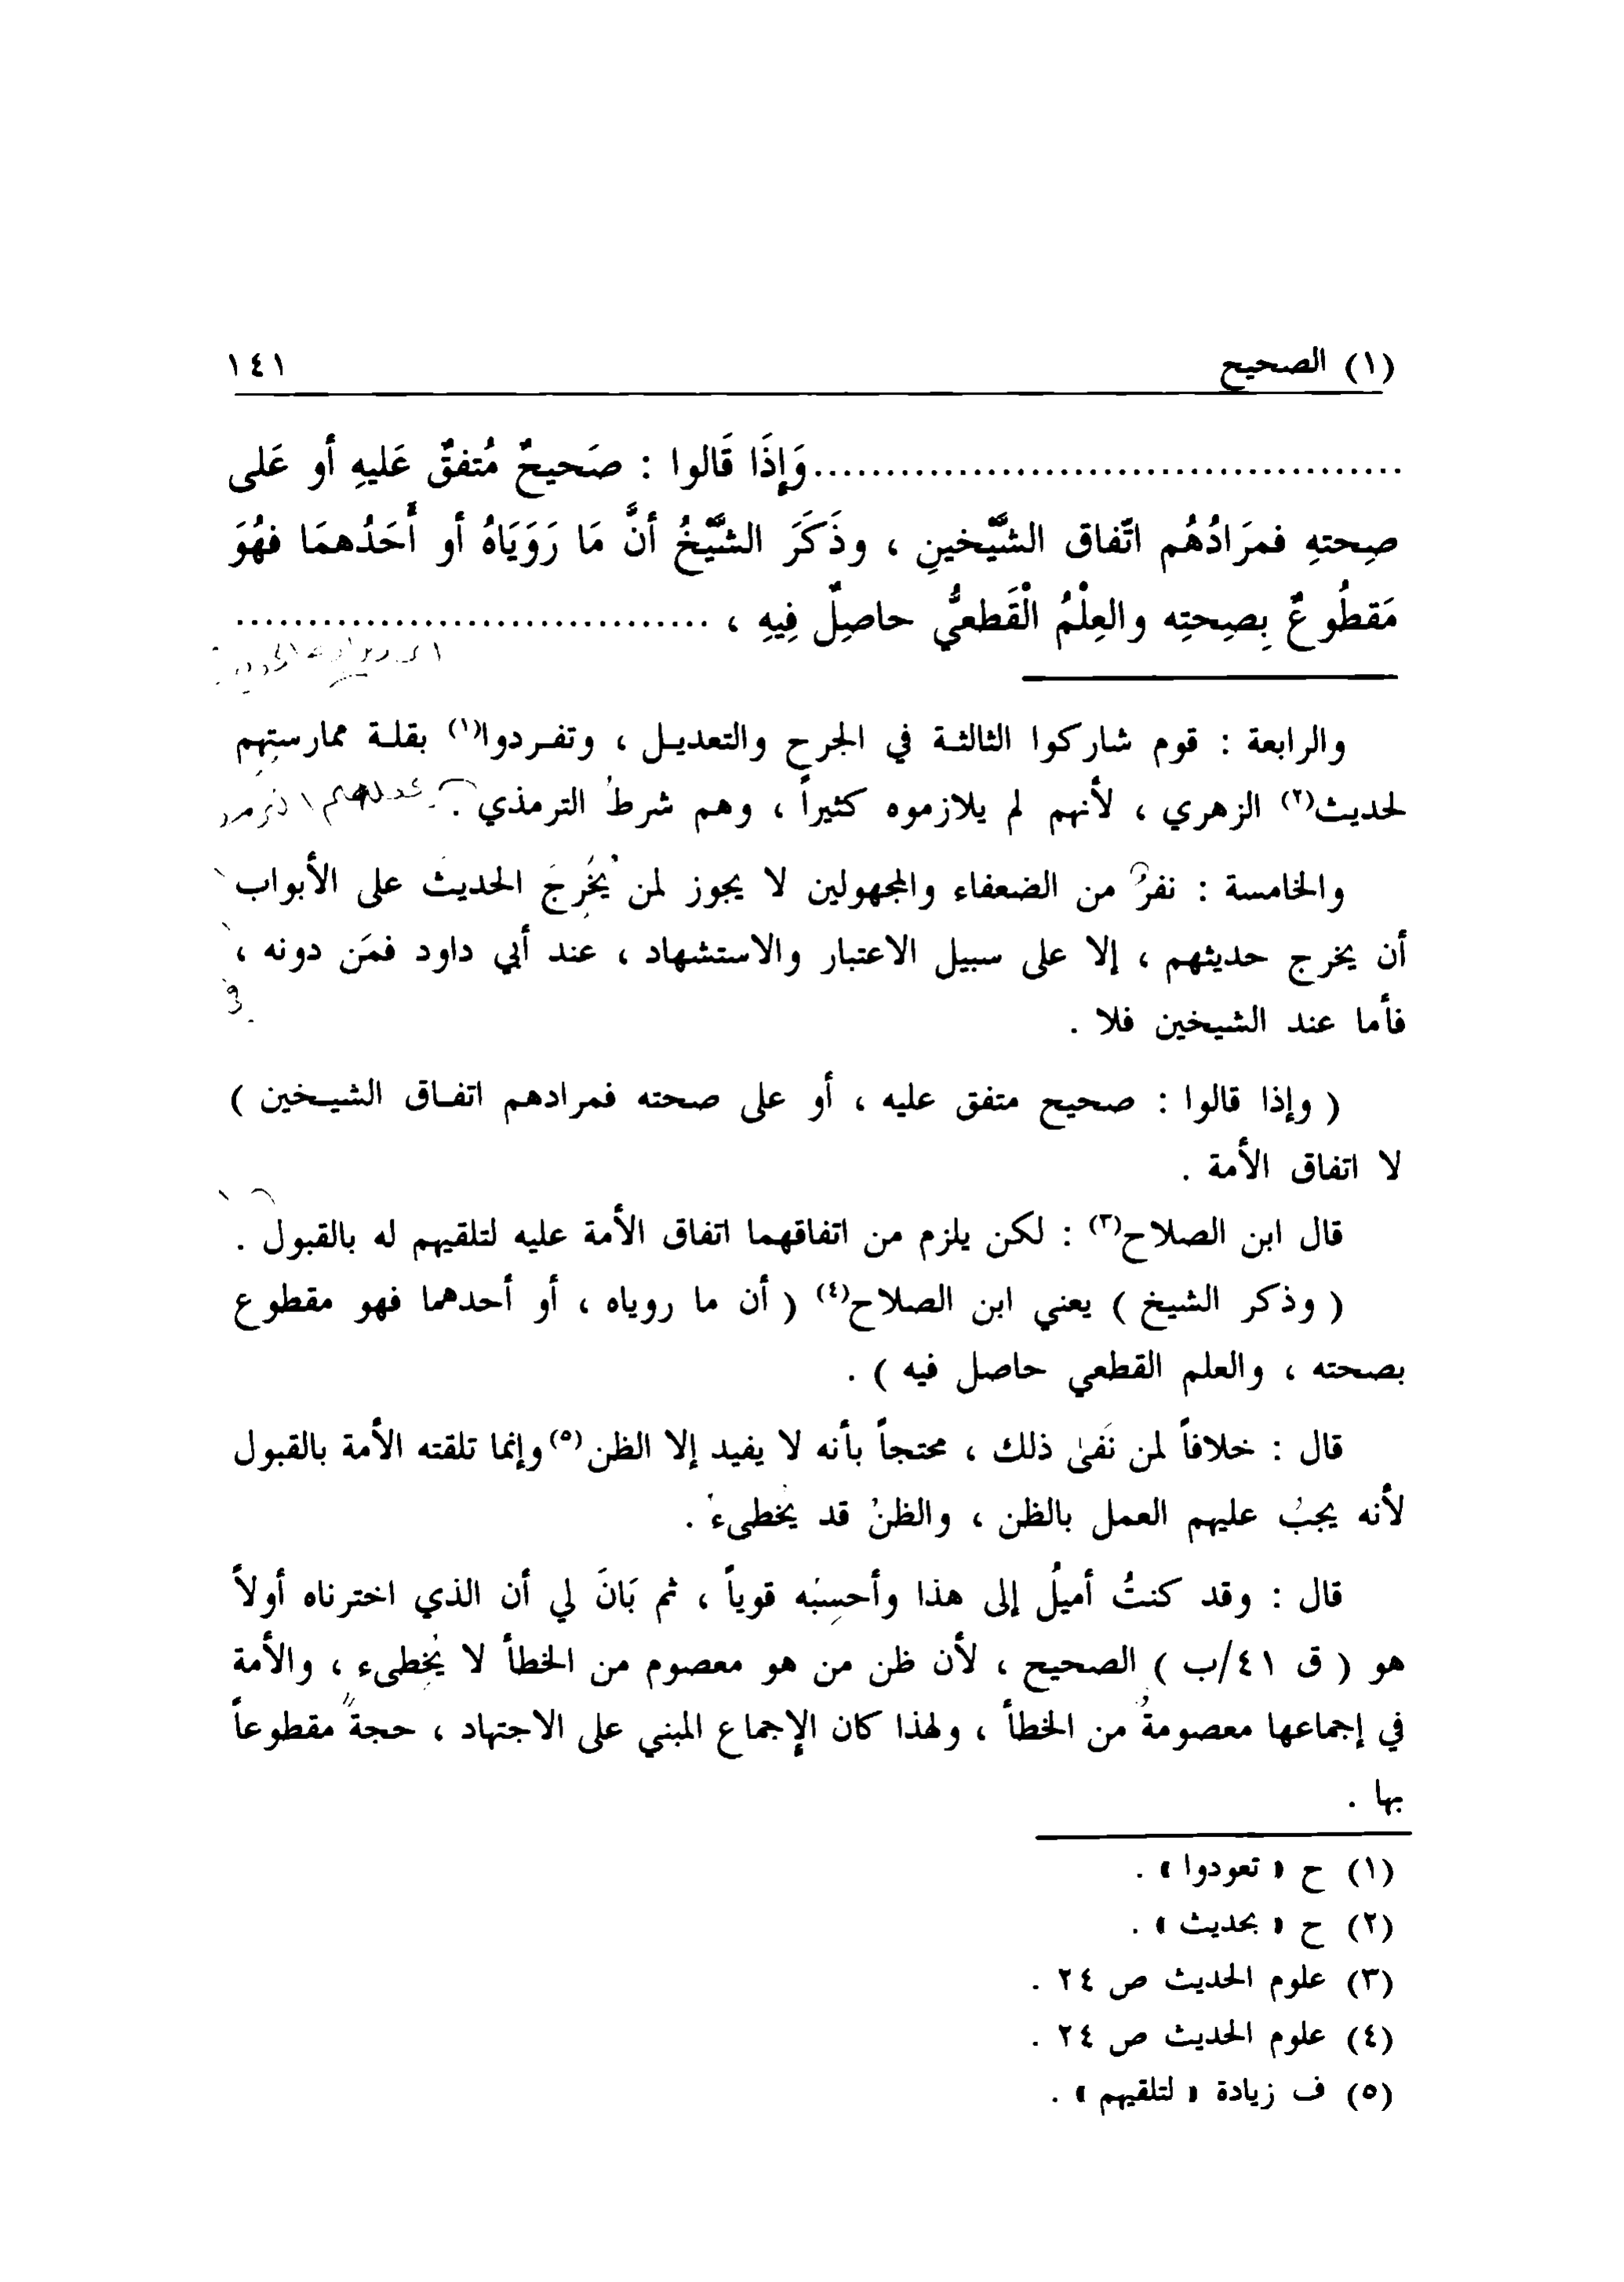 (١) الصحيح ١٤١
........................................ وَإِذَا قَالوا : صَحيحٌ مُتفقٌ عَليهِ أو عَلى
صِحتهِ فمرَادُهُم اتّفاق الشَّيْخينِ ، وذَكَرَ الشَّيْخُ أنَّ مَا رَوَيَاهُ أو أَحَدُهمَا فهُوَ
مَقطُوعٌ بِصِحتِه والعِلْمُ الْقَطعيُّ حاصِلٌ فِيهِ ، .................................
والرابعة : قوم شاركوا الثالثة في الجرح والتعديل ، وتفردوا(١) بقلة ممارستِهم
لحديث(٢) الزهري ، لأنهم لم يلازموه كثيراً ، وهم شرطُ الترمذي .
والخامسة : نفرٌ من الضعفاء والمجهولين لا يجوز لمن يُخَرِجَ الحديثَ على الأبواب
أن يخرج حديثهم ، إلا على سبيل الاعتبار والاستشهاد ، عند أبي داود فمَن دونه ،
فأما عند الشيخين فلا .
( وإذا قالوا : صحيح متفق عليه ، أو على صحته فمرادهم اتفاق الشيخين )
لا اتفاق الأمة .
قال ابن الصلاح(٣) : لكن يلزم من اتفاقهما اتفاق الأمة عليه لتلقيهم له بالقبول .
( وذكر الشيخ ) يعني ابن الصلاح(٤) ( أن ما روياه ، أو أحدهما فهو مقطوع
بصحته ، والعلم القطعي حاصل فيه ) .
قال : خلافاً لمن نَفىٰ ذلك ، محتجاً بأنه لا يفيد إلا الظن(٥) وإنما تلقته الأمة بالقبول
لأنه يجبُ عليهم العمل بالظن ، والظنُ قد يُخطىءُ .
قال : وقد كنتُ أميلُ إلى هذا وأحسِبُه قوياً ، ثم بَانَ لي أن الذي اخترناه أولاً
هو ( ق ٤١/ب ) الصحيح ، لأن ظن من هو معصوم من الخطأ لا يُخِطىء ، والأمة
في إجماعها معصومةُ من الخطأ ، ولهذا كان الإجماع المبني على الاجتهاد ، حجةً مقطوعاً
بها .
(١) ح « تعودوا » .
(٢) ح « بحديث » .
(٣) علوم الحديث ص ٢٤ .
(٤) علوم الحديث ص ٢٤ .
(٥) ف زيادة « لتلقيهم » .